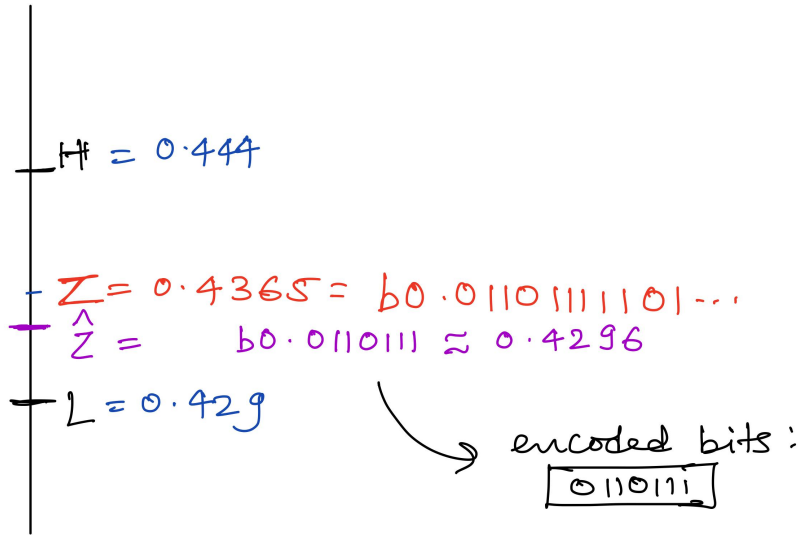 H = 0.444
Z = 0.4365 = b0.01101111101...
Ẑ = b0.0110111 ≈ 0.4296
L = 0.429
encoded bits:
0110111